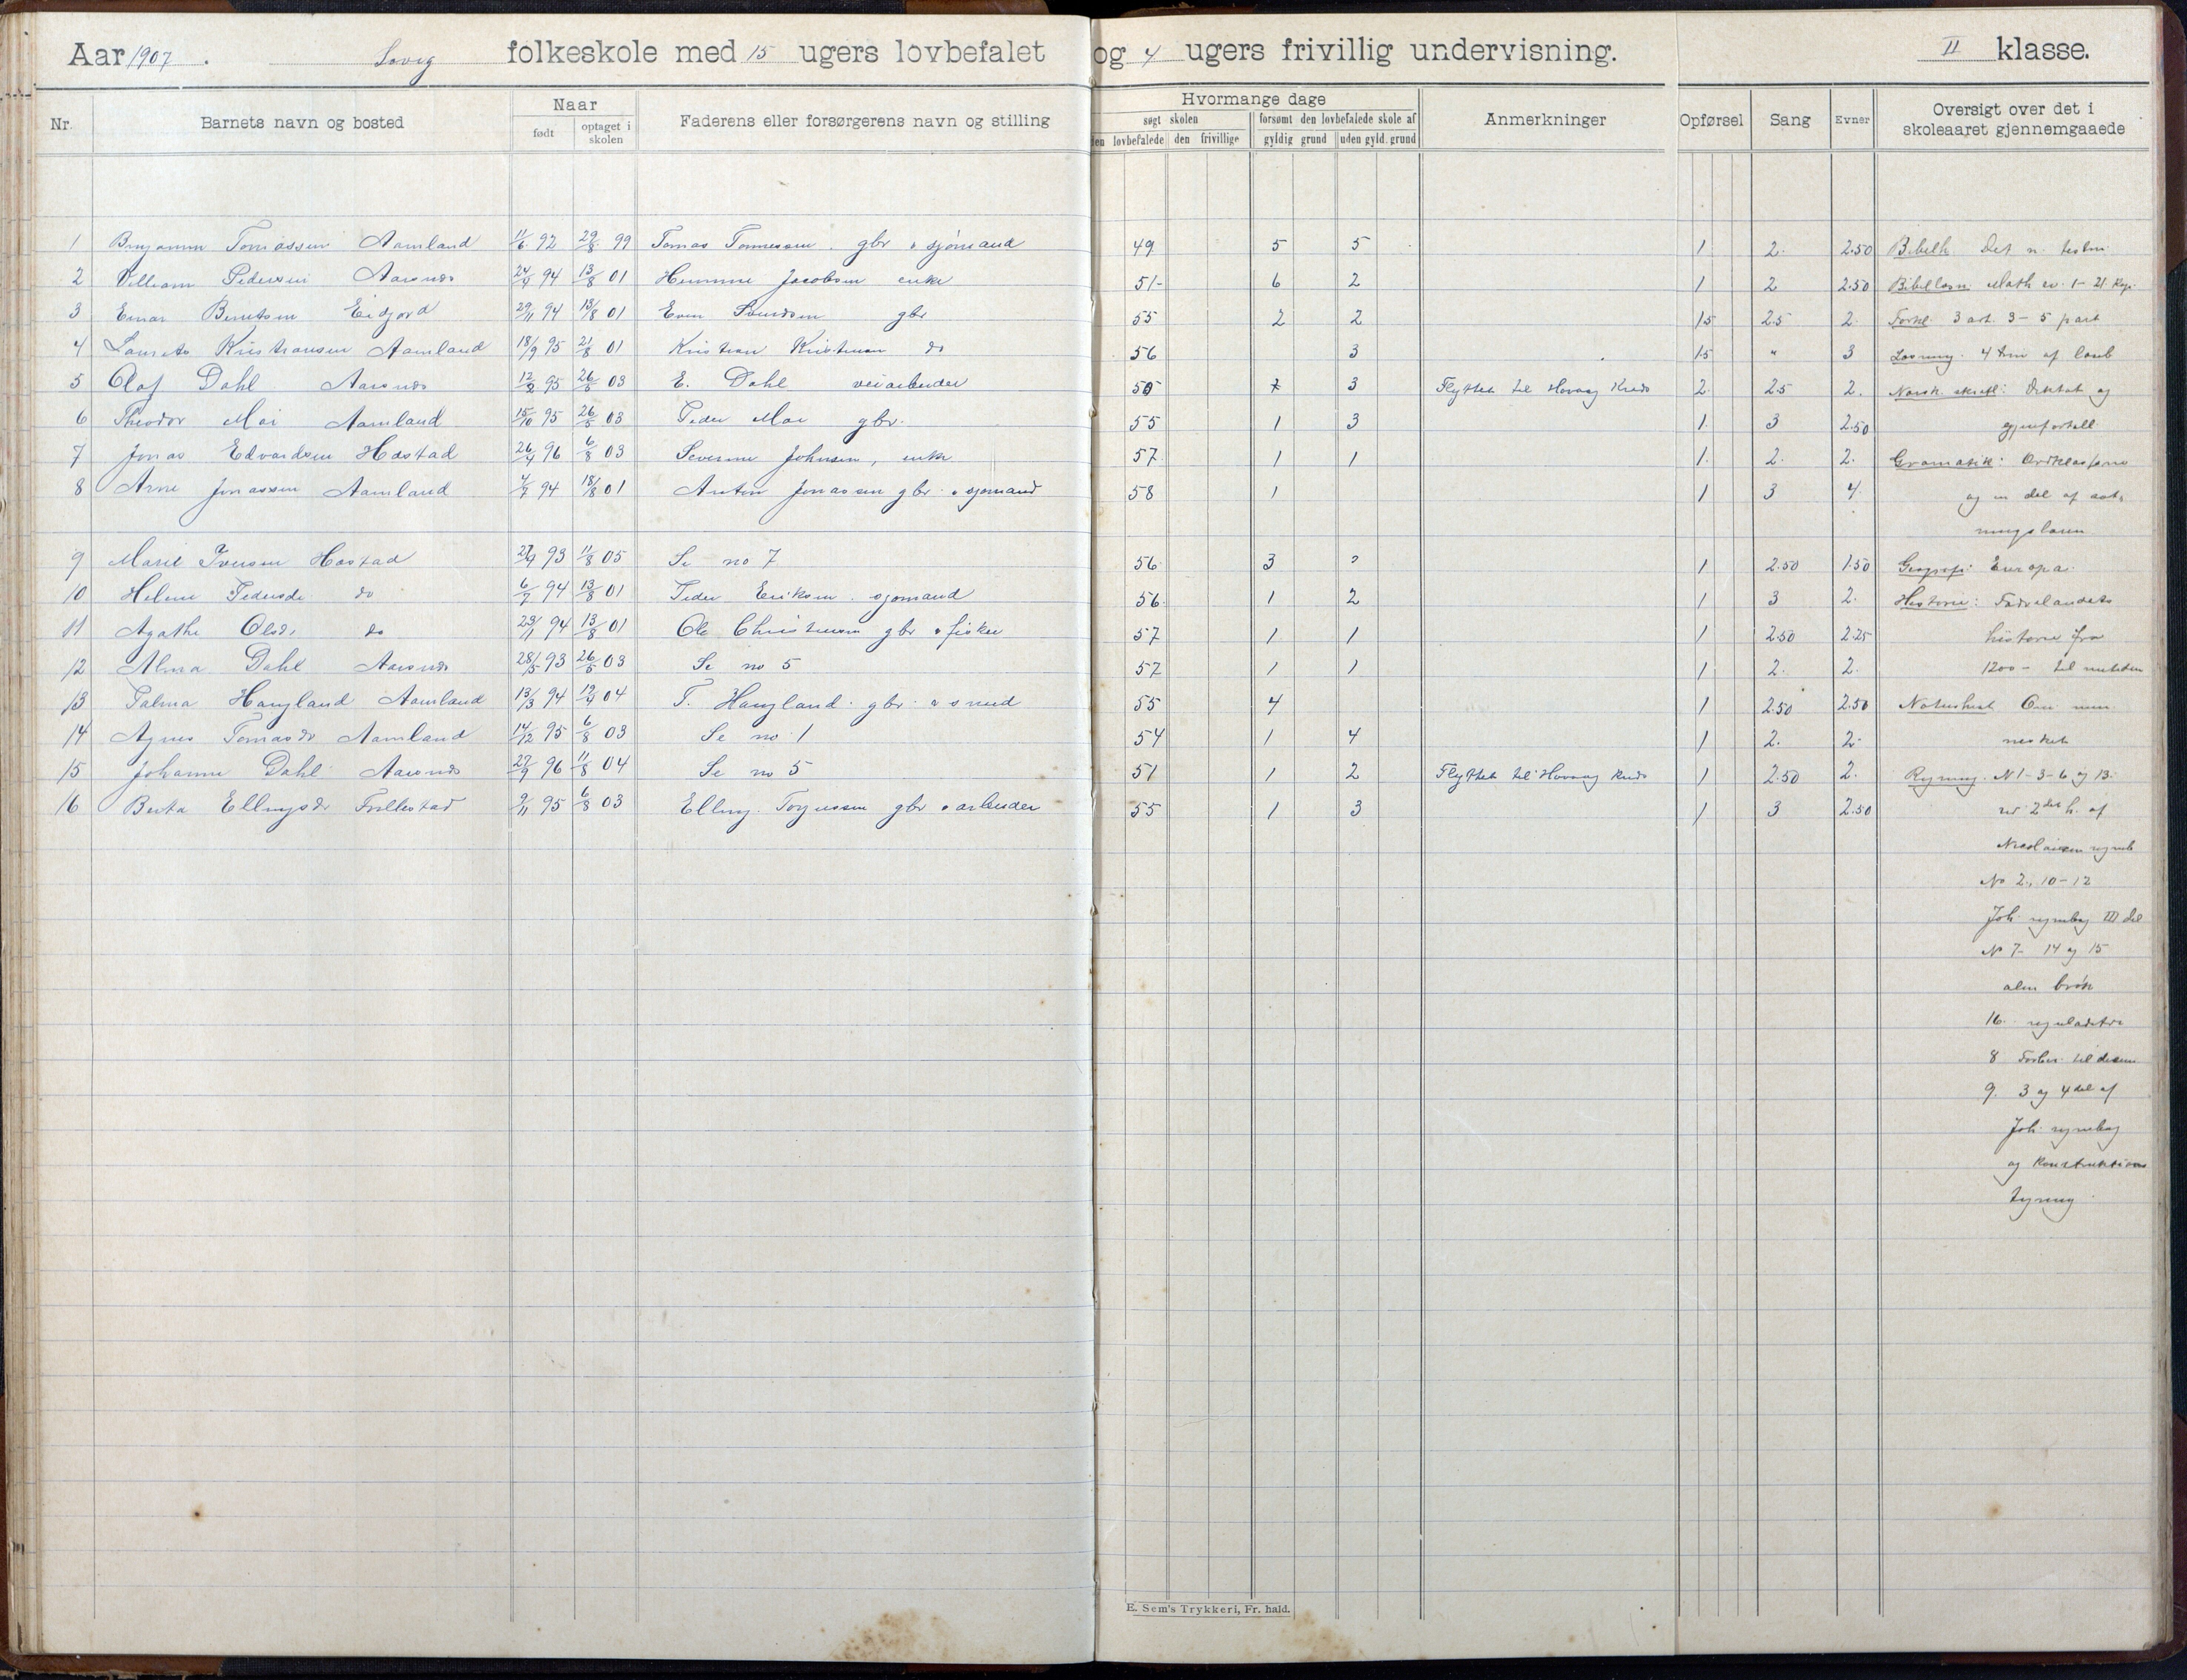 Aar 1907. folkeskole med 15 ugers lovbefalet og 4 ugers frivillig undervisning. II klasse.
Nr. Barnets navn og bosted Naar født optaget i skolen Faderens eller forsørgerens navn og stilling Hvormange dage søgt skolen den lovbefalede den frivillige forsømt den lovbefalede skole af gyldig grund uden gyld. grund Anmerkninger Opførsel Sang Evner Oversigt over det i skoleaaret gjennemgaaede
1 Tomassen Aamland 11/6 92 29/8 99 Tomas gbr. sjømand 49 5 5 1 2. 2.50 Bibelh. Det n. testm.
2 Pedersen 94 13/8 01 Jacobsen enke 51 6 2 1 2 2.50 Math ev. 1-21. Kap.
3 Einar Berntsen Eidjord 29/11 94 13/8 01 gbr 55 2 2 1.5 2.5 2. 3 art. 3-5 part
4 Kristiansen Aamland 18/9 95 21/8 01 Kristian do 56 3 1.5 " 3 4 af
5 Olaf Dahl 95 03 E. Dahl veiarbeider 50 3 Flyttet til Høvaag Kreds 2. 2.5 2. Norsk skriftl: Diktat og
6 Theodor Moi Aamland 15/10 95 26/5 03 Peder Moi gbr. 55 1 3 1. 3 2.50 gjenfortell.
7 Jonas Edvardsen Høstad 26/4 96 6/8 03 Johnsen, enke 57. 1 1 1. 2. 2. Gramatik:
8 Arne Jonassen Aamland 4/7 94 18/8 01 Anton Jonassen gbr. sjømand 58 1 1 3 4. og en del af
9 Marie Iversen Høstad 93 11/8 05 Se no 7 56 3 1 2.50 1.50 Geografi: Europa.
10 Helene do 6/7 94 13/8 01 Peder Eriksen. sjømand 56. 1 2 1 3 2. Historie: Fædrelandets
11 Agathe Olsdr do 94 13/8 01 Ole gbr fisker 57 1 1 1 2.50 2.25 historie fra
12 Alma Dahl 28/5 93 26/5 03 Se no 5 57 1 1 1 2. 2. 1200 - til nutiden
13 Palma Haugland Aamland 13/3 94 04 T. Haugland. gbr. smed 55 4 1 2.50 2.50 Naturhist. Om men
14 Agnes Tomasdr Aamland 14/12 95 6/8 03 Se no 1 54 1 4 1 2. 2. nesket
15 Johanne Dahl 27/9 96 11/8 04 Se no 5 51 1 2 Flyttet til Høvaag kreds 1 2.50 2. Regning. N 1-3-6 og 13.
16 Berta Ellingsdr 9/11 95 6/8 03 Elling gbr arbeider 55 1 3 1 3 2.50 2det h. af
Nicolaisen regneb
No 2, 10-12
Joh. regnebog III del
No 7- 14 og 15
alm brøk
16.
8
9. 3 og 4 del af
Joh. regnebog
og konstruktions
tegning.
E. Sem's Trykkeri, Fr. hald.